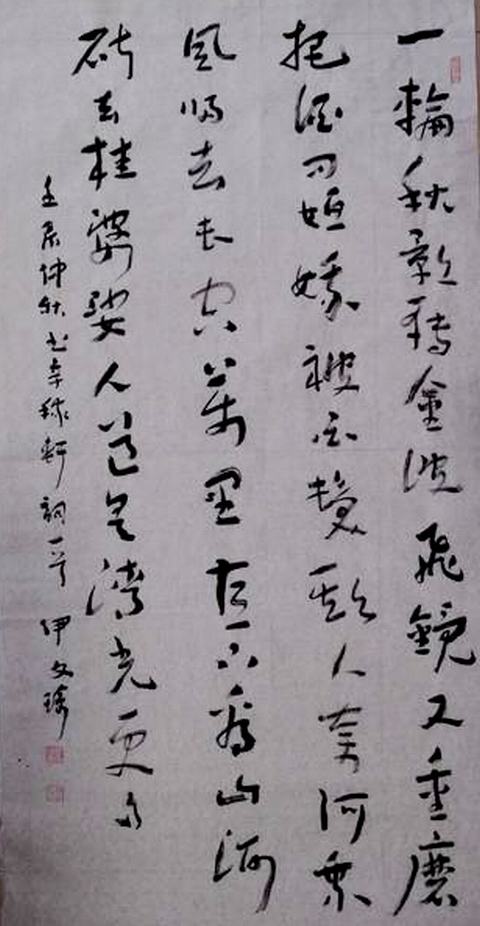 一輪秋影轉金波飛鏡又重磨
把酒问姮娥被白髮欺人奈何乘
風去长空萬里直下看山河
斫去桂婆娑人道是清光更多
壬辰仲秋书辛稼軒詞一首 伊文